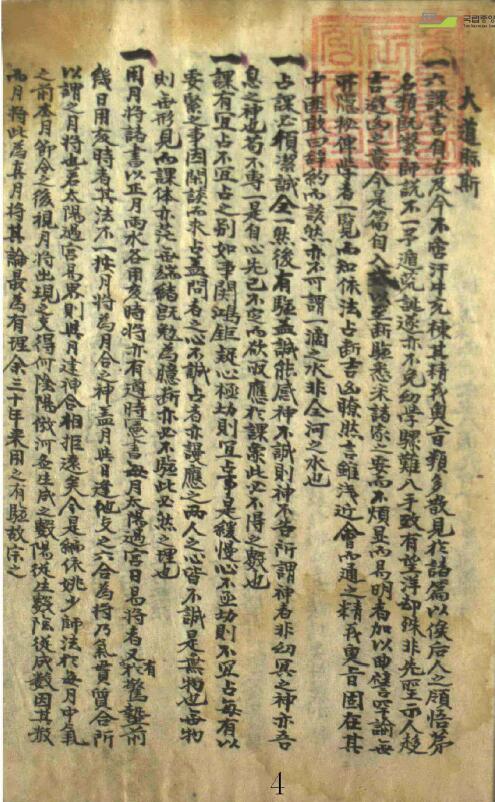 국립중앙
大道斯
一六課書自古及今不啻汗牛充棟其精義奧旨類多散見於諸篇以俟後人之領悟第
名類旣繁師說不一予遍疏訛遂亦不免幼學驟難入手致有望洋却殊非先聖示人趍
吉避凶之意今是篇自入以至断驗悉采諸家之要而不煩且而易明者加以曲譬罕諭每
隱秘俾學者一覽而知依法占断吉凶瞭然言雖浅近會而通之精義奧旨固在其
中匪敢曰辞約而該然亦不可謂一滴之水非全河之水也
一占課必須潔誠全一然後有驗盖誠能感神不誠則神不告所謂神者非幽冥之神亦吾
息之神也苟不專一是自心先已不定而欲取應於課此必不得之數也
一課有宜占不宜占之別如事関鴻鉅疑心極切則宜占事是緩慢心不亟切則不宜占每有以
要緊之事因閒談而来占盖問者之心不誠占者亦謾應之両人之心皆不誠是無物也無物
則無形見而課体亦茫無端緖旣勉為臆断亦必不驗此必然之理也
一用月將諸書以正月雨水各用亥時將亦有遵時憲書每月太陽過宮日易將者又有於驚蟄前
幾日用亥時者其法不一按月將為月合之神盖月與日逢他支之六合為將乃氣貫質合所
以謂之月將也若太陽過宮為界則與月建神合相拒遠矣今是編依姚少師法於每月中氣
之前叁月節令之後視月將出現之支得何陰陽倣河啚生成之數陽從生數陰從成數因其數
而月將此為真月將其論最為有理余三十年来用之有驗故宗之
4